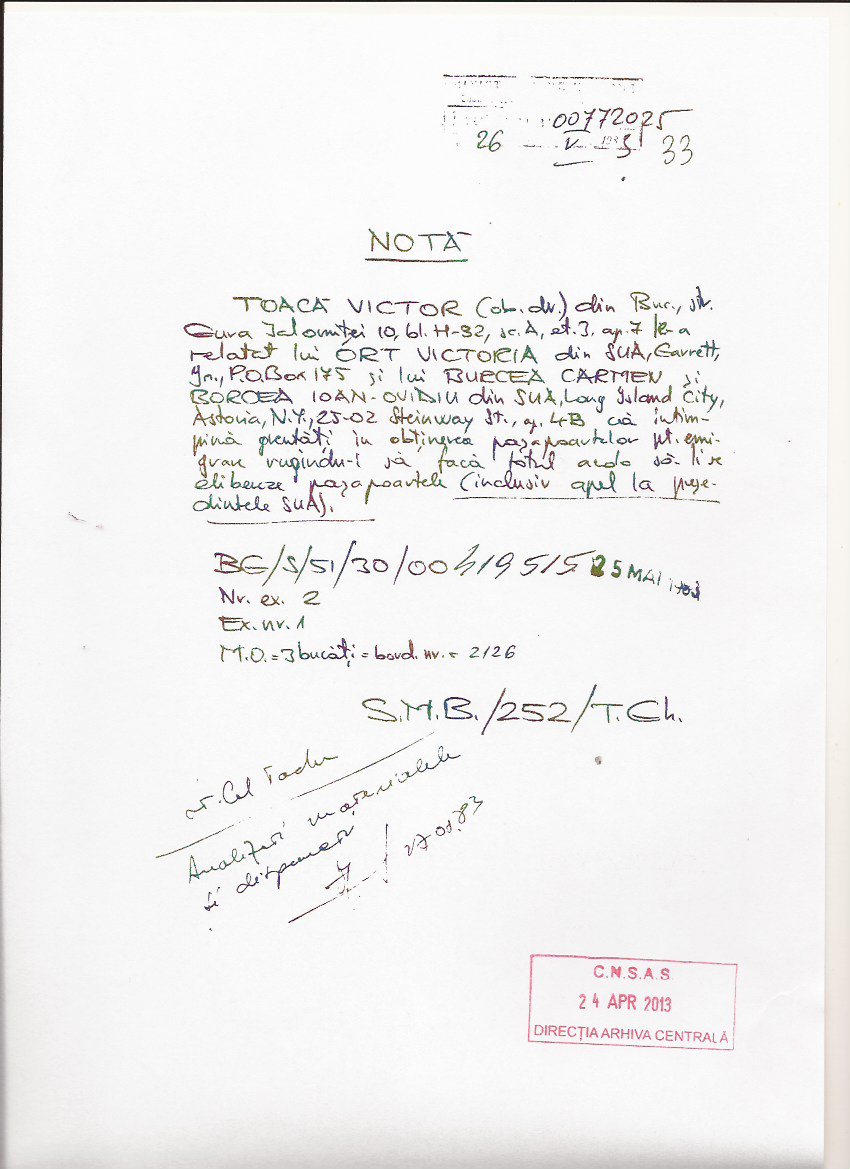 00772025
26 V 1983 33
NOTĂ
TOACĂ VICTOR (ob. dv.) din Buc., str.
Gura Ialomiței 10, bl. H-32, sc. A, et. 3, ap. 7 le-a
relatat lui ORT VICTORIA din SUA, Garrett,
In., P.O. Box 175 și lui BURCEA CARMEN și
BORCEA IOAN-OVIDIU din SUA, Long Island City,
Astoria, N.Y., 25-02 Steinway St., ap. 4B că întîm-
pină greutăți în obținerea pașapoartelor pt. emi-
grare rugîndu-i să facă totul acolo să li se
elibereze pașapoartele (inclusiv apel la preșe-
dintele SUA).
BG/S/51/30/00419515 25 MAI 1983
Nr. ex. 2
Ex. nr. 1
M.O. = 3 bucăți = bord. nr. = 2126
S.M.B./252/T.Ch.
Lt. Col
Analizați materialele
și
C.N.S.A.S.
24 APR 2013
DIRECȚIA ARHIVA CENTRALĂ